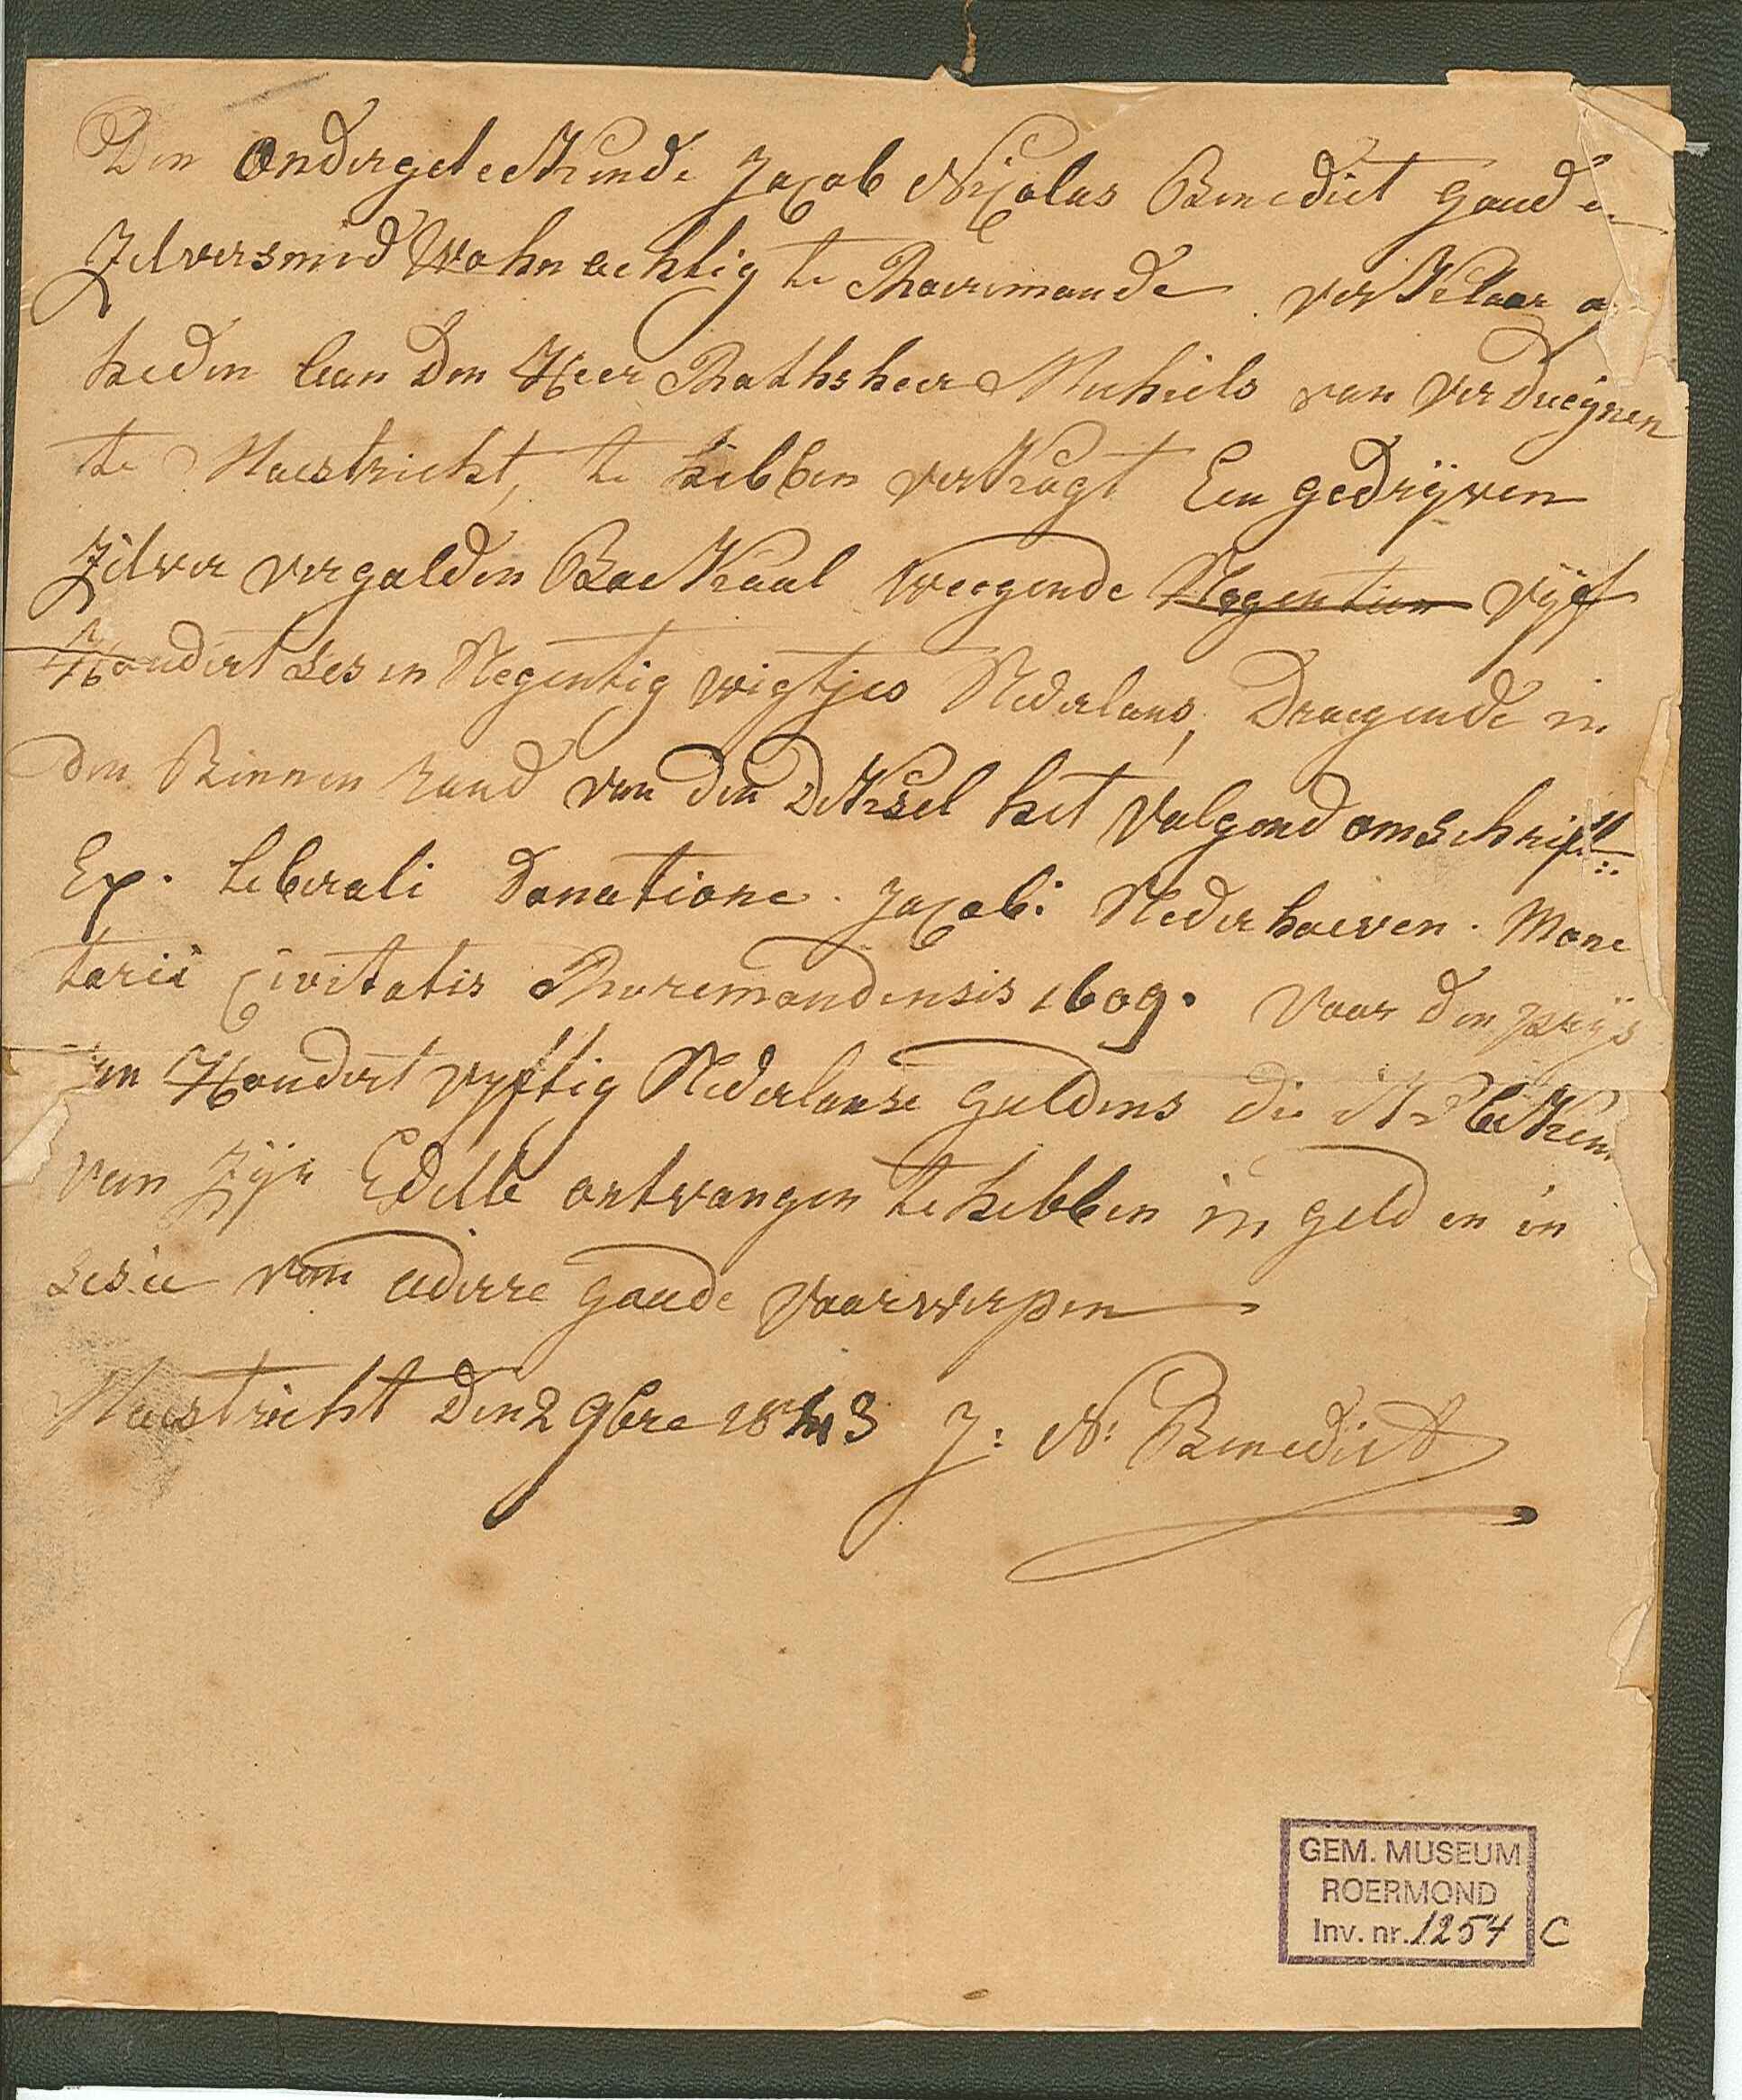 Den Ondergeteekende Jacob Nicolas Benedict Goud en
Zilversmid Wohnachtig te Rhoerimonde verkelaar
heden aan Den Heer Rathsheer Michiels van Verdueynen
te Maestricht, te hebben verkogt Een gedryven
Zilver vergolden Baekaal Weegende Negentien vyf
Hondert ses en Negentig wigtjes Nederlans, Draegende in
den Binnen rand van den Deksel het Volgend omschrift:
Ex. Leberali Donatione. Jacobi Nederhoeven. Mone
tarii Civitatis Ruremondensis 1609. Voor den prys
Hondert vyftig Nederlanse Guldens die ik
van Zyn Edelle ontvangen te hebben in geld en in
van adere goude Voorwerpen
Maestricht Den 2 9bre 1843 J: N: Benedict
GEM. MUSEUM
ROERMOND
Inv. nr. 1254 C